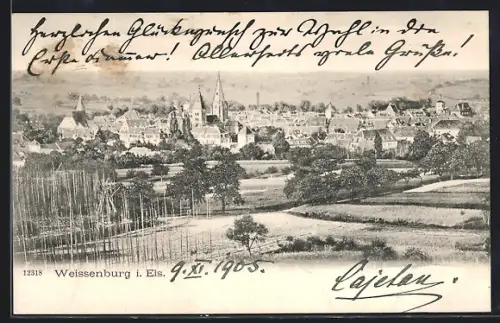 Herzlochen Glückwunsch zur Wahl in den
Erste Kammer! Allerherts vrele Grüße!
12318 Weissenburg i. Els. 9. XI. 1905. Cajetan.